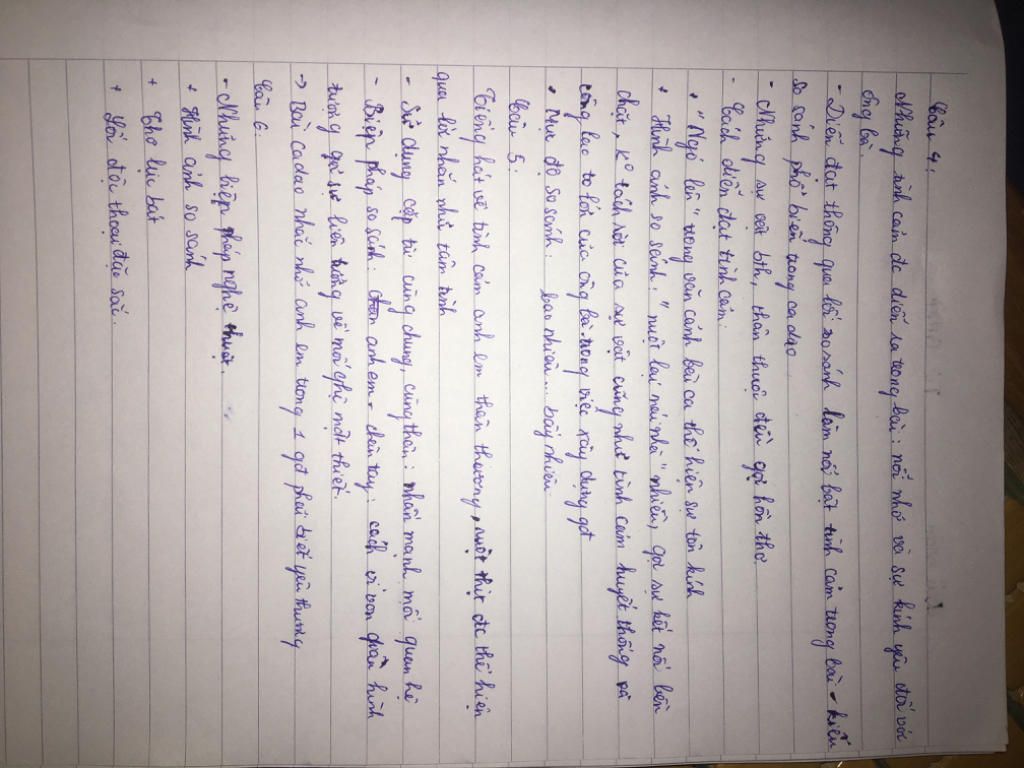 Câu 4:
Những tình cảm đc diễn ra trong bài: nỗi nhớ và sự kính yêu đối với
ông bà.
- Diễn đạt thông qua lối so sánh làm nổi bật tình cảm trong bài - kiểu
so sánh phổ biến trong ca dao
- Những sự vật bth, thân thuộc đều gợi hồn thơ
- Cách diễn đạt tình cảm:
• "Ngó lên" trong văn cảnh bài ca thể hiện sự tôn kính
• Hình ảnh so sánh: "nuột lạt mái nhà" nhiều, gợi sự kết nối bền
chặt, ko tách rời của sự vật cũng như tình cảm huyết thống và
công lao to lớn của ông bà trong việc xây dựng gđ
• Mức độ so sánh: bao nhiêu... bấy nhiêu
Câu 5:
Tiếng hát về tình cảm anh em thân thương, ruột thịt đc thể hiện
qua lời nhắn nhủ tâm tình
- Sử dụng cặp từ cùng chung, cùng thân: nhấn mạnh mối quan hệ
- Biện pháp so sánh: anh em - chân tay: cách ví von giàu hình
tượng gợi sự liên tưởng về mối qhệ mật thiết.
→ Bài ca dao nhắc nhở anh em trong 1 gđ phải biết yêu thương
Câu 6:
- Những biện pháp nghệ thuật.
+ Hình ảnh so sánh
+ Thơ lục bát
+ Lối đối thoại đặc sắc.